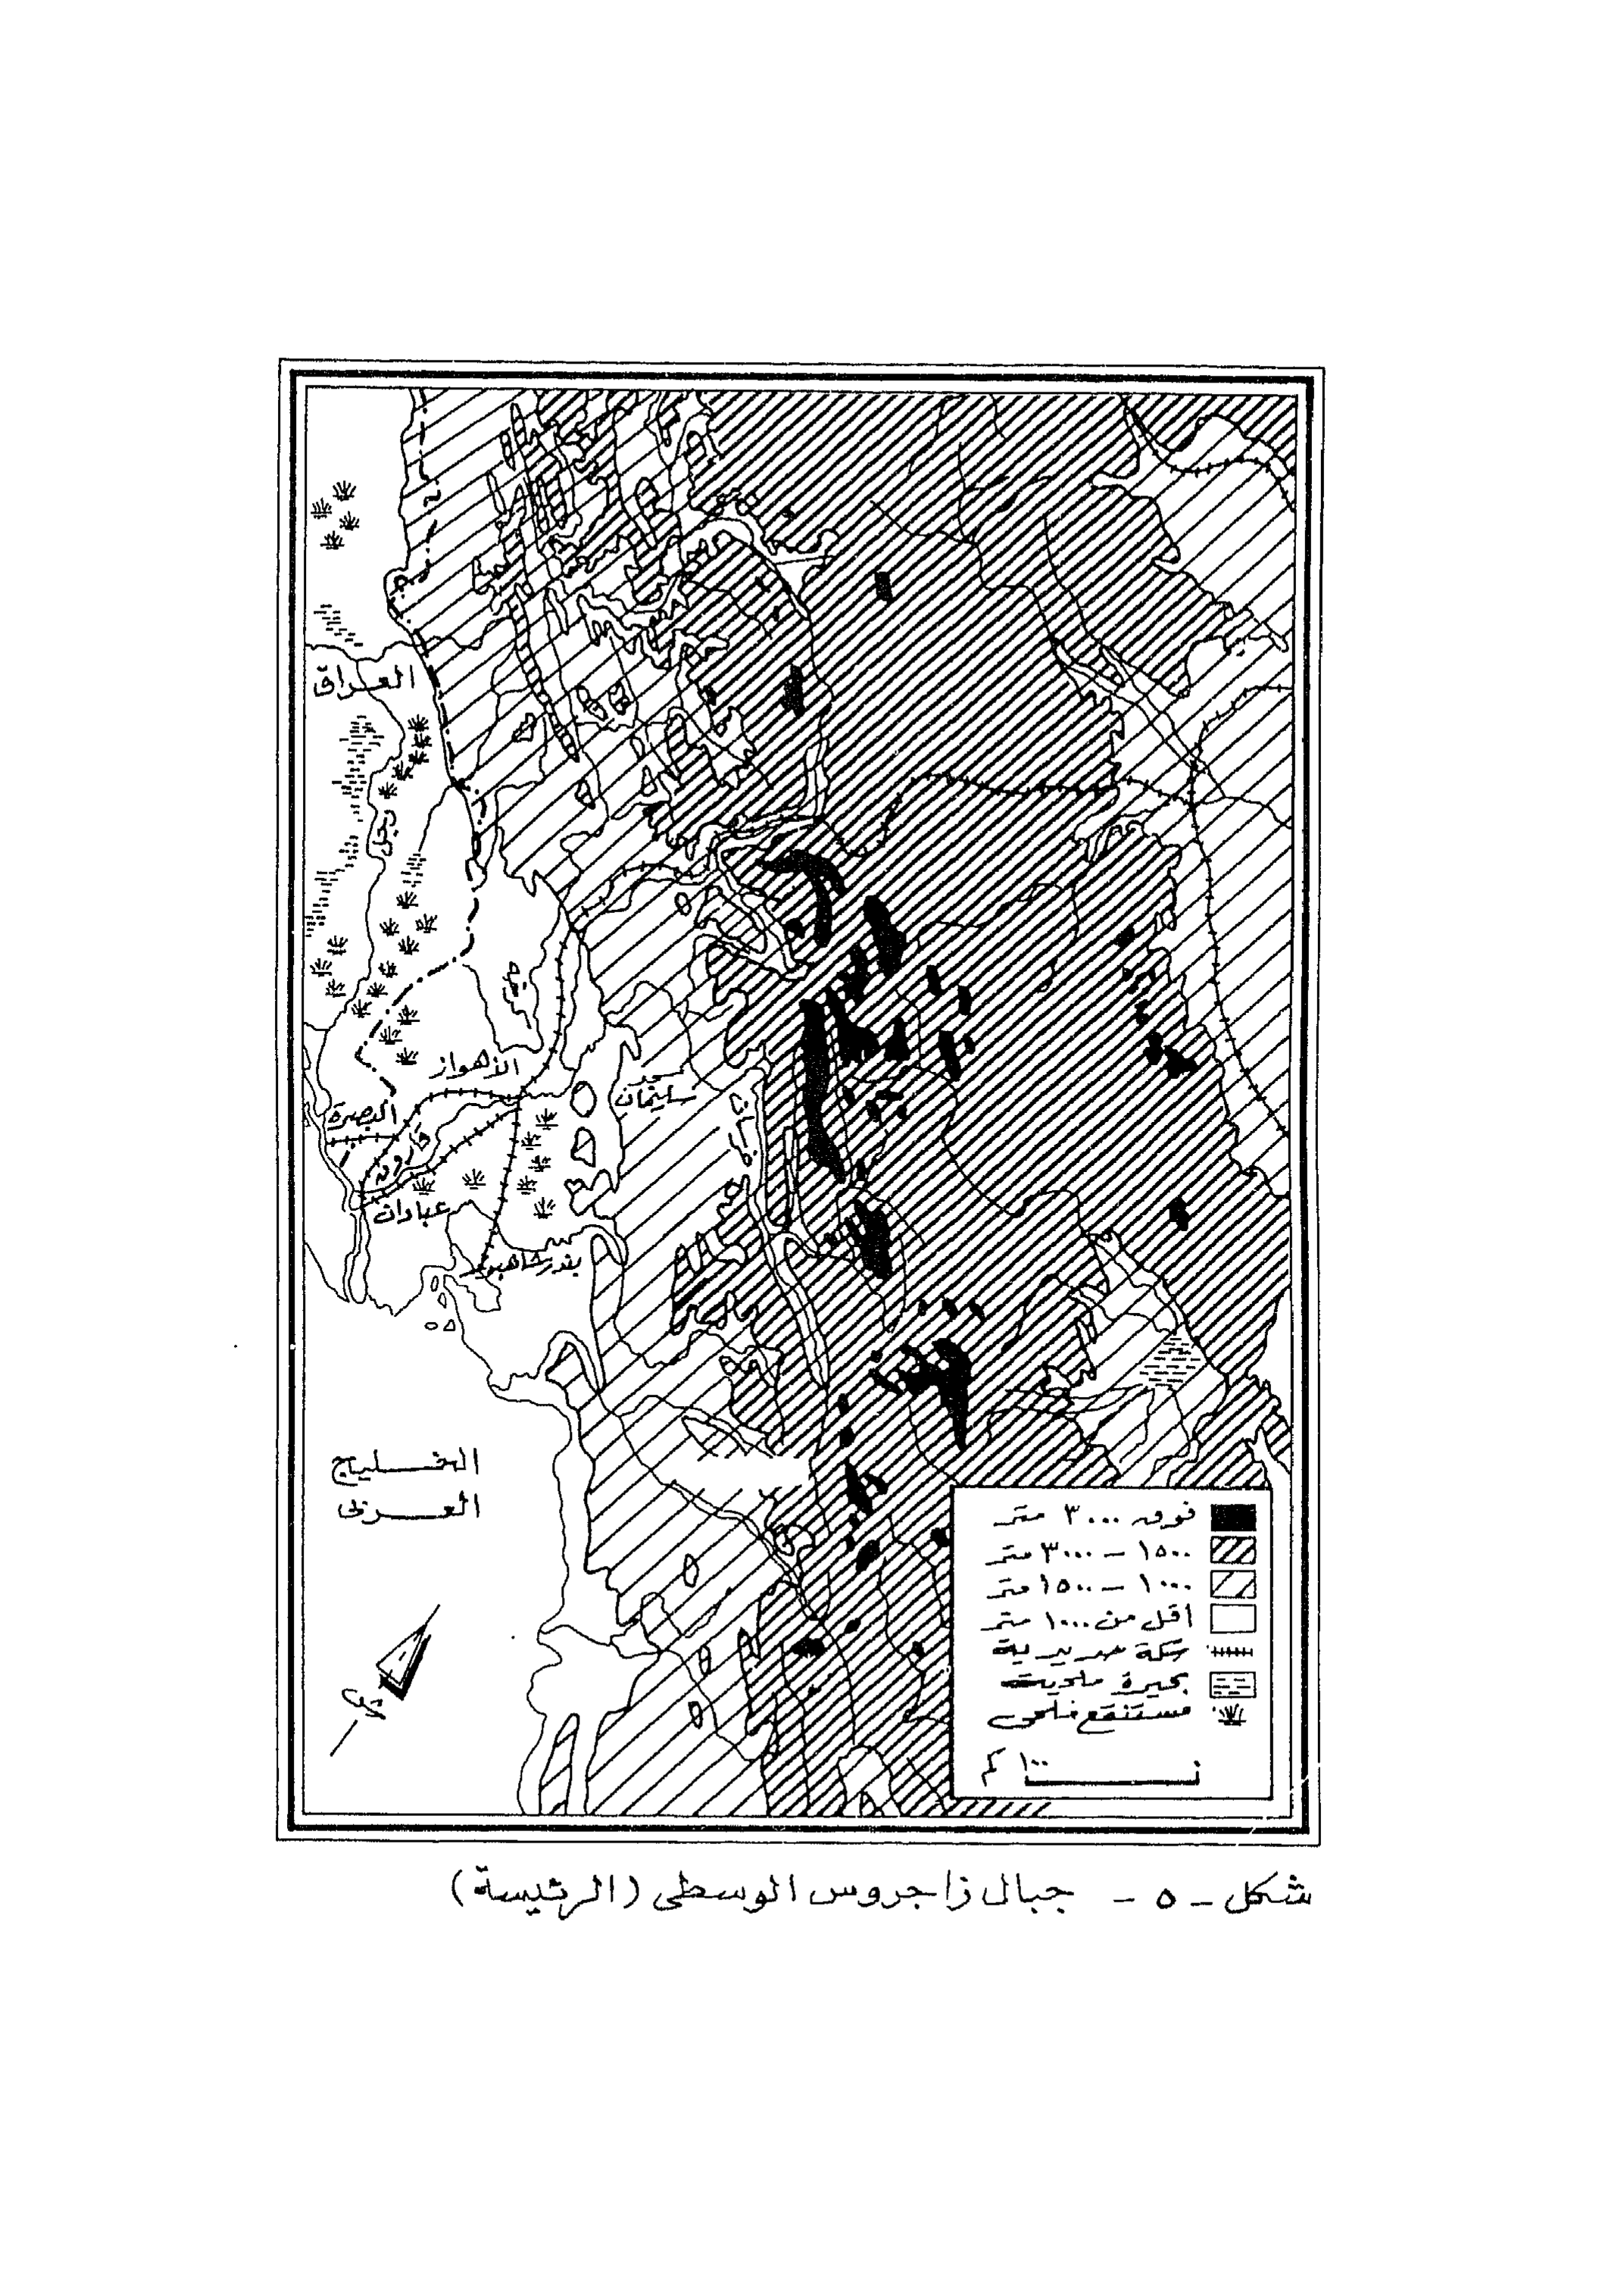 العراق
دجلة
الأهواز
مسجد
سليمان
البصرة
قارون
عبادان
بندرشاهبور
الخليج
العربى
فوق ٣٠٠٠ متر
١٥٠٠ - ٣٠٠٠ متر
١٠٠٠ - ١٥٠٠ متر
أقل من ١٠٠٠ متر
سكة حديدية
بحيرة ملحية
مستنقع ملحى
١٠٠ كم
شكل - ٥ - جبال زاجروس الوسطى (الرئيسة)